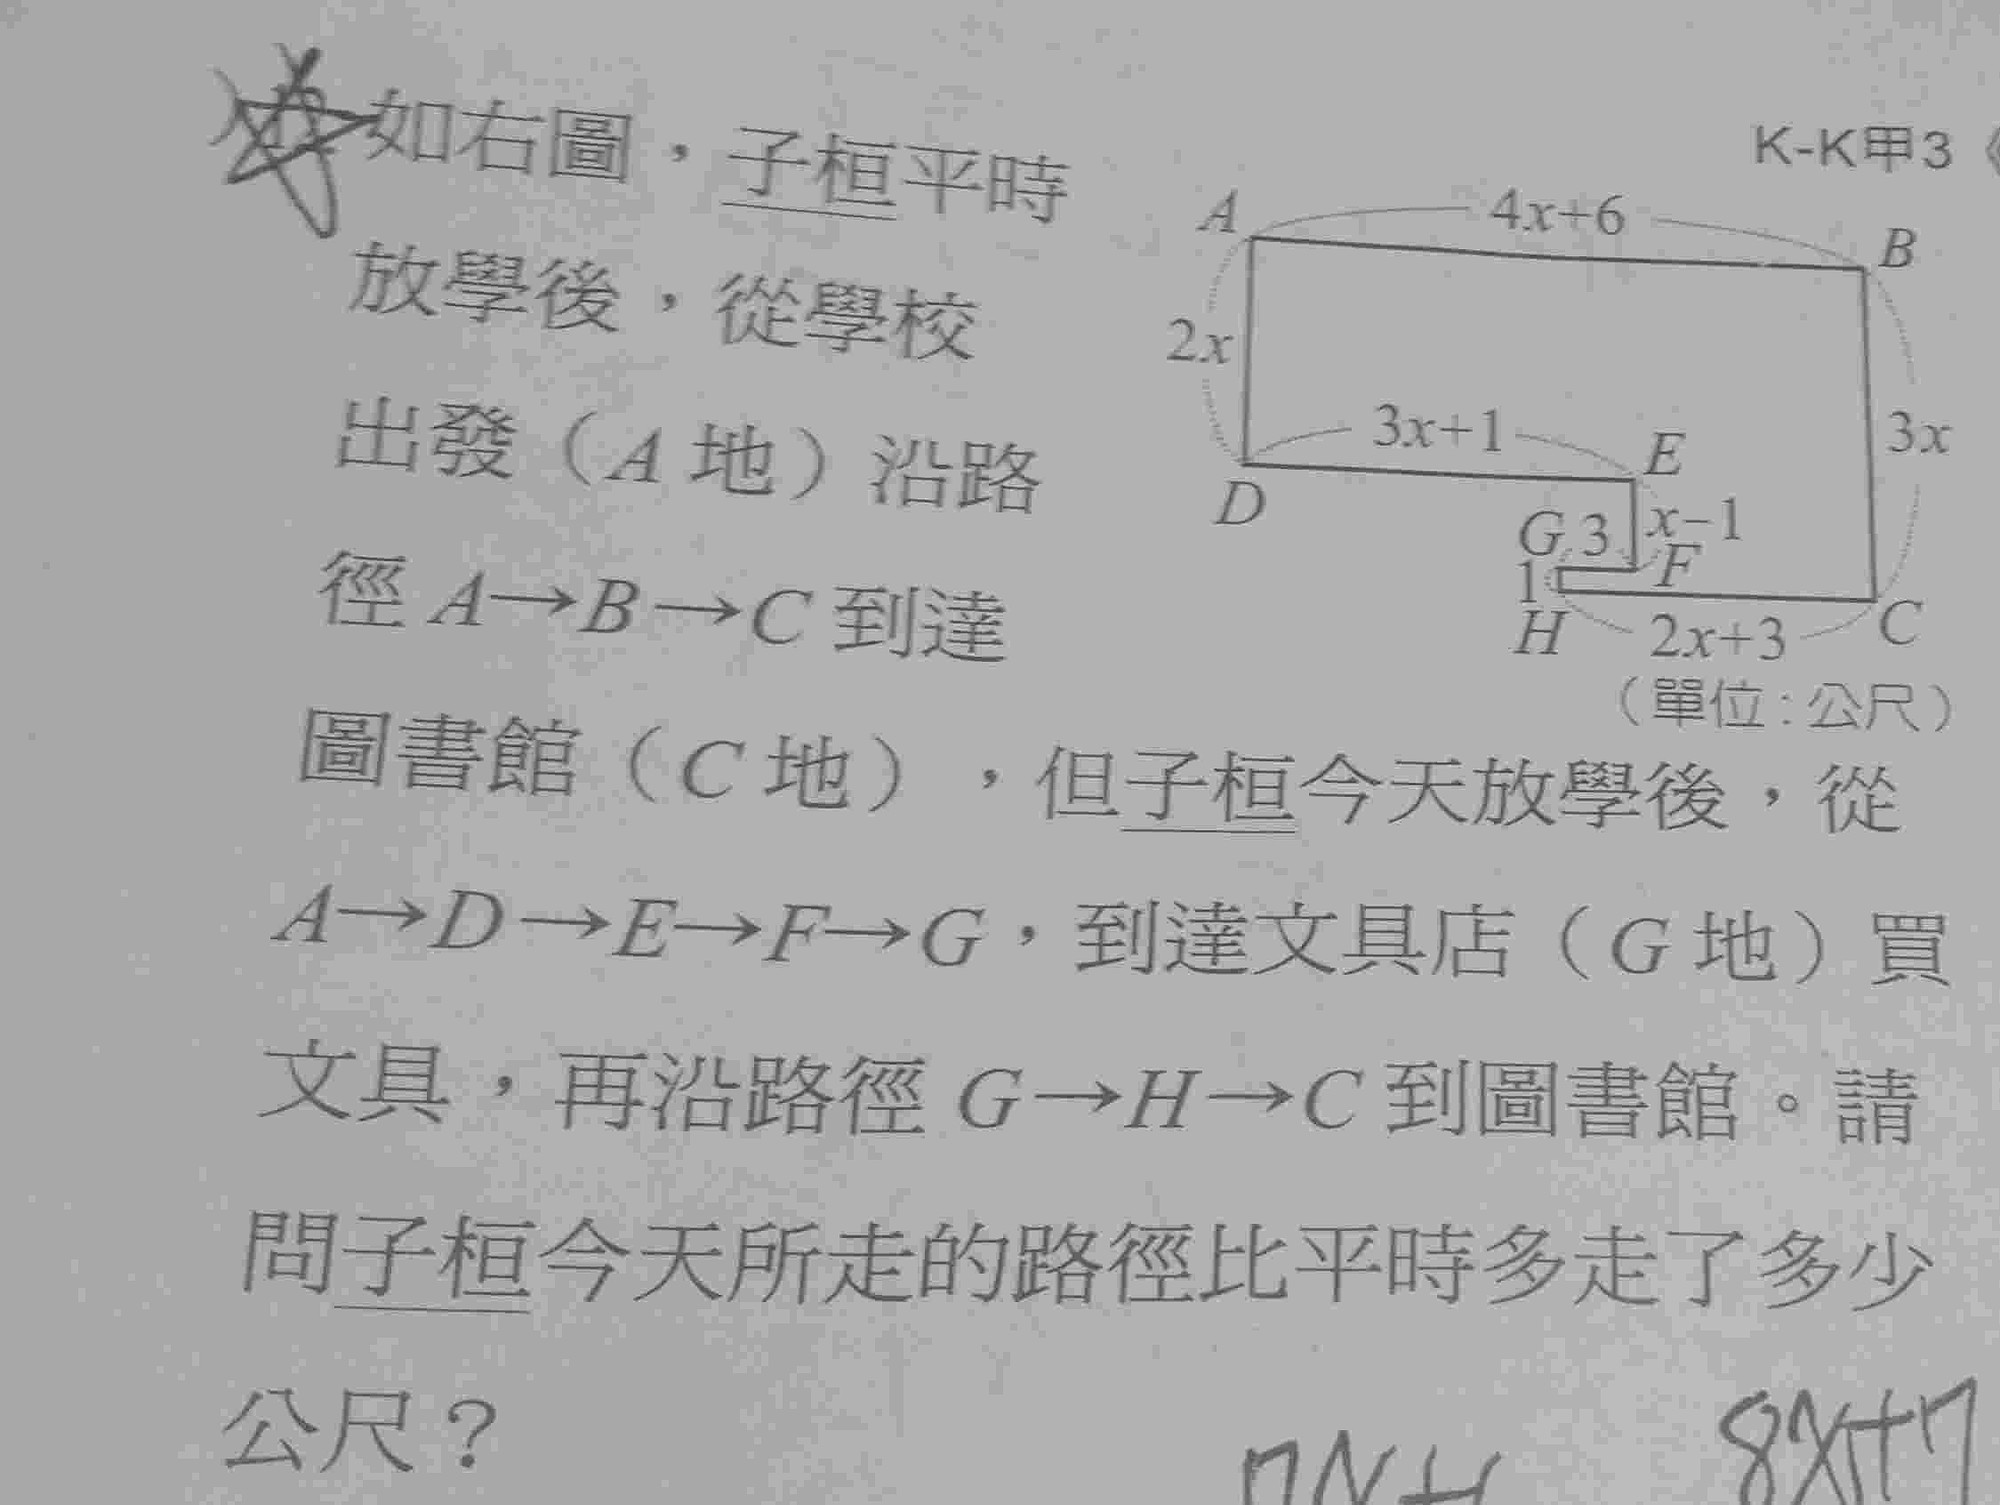 K-K甲3《
如右圖，子桓平時
放學後，從學校
出發（A 地）沿路
徑 A→B→C 到達
圖書館（C 地），但子桓今天放學後，從
A→D→E→F→G，到達文具店（G 地）買
文具，再沿路徑 G→H→C 到圖書館。請
問子桓今天所走的路徑比平時多走了多少
公尺？
A
4x+6
B
2x
3x
3x+1
E
D
x-1
G
3
F
1
H
2x+3
C
（單位：公尺）
8x+7